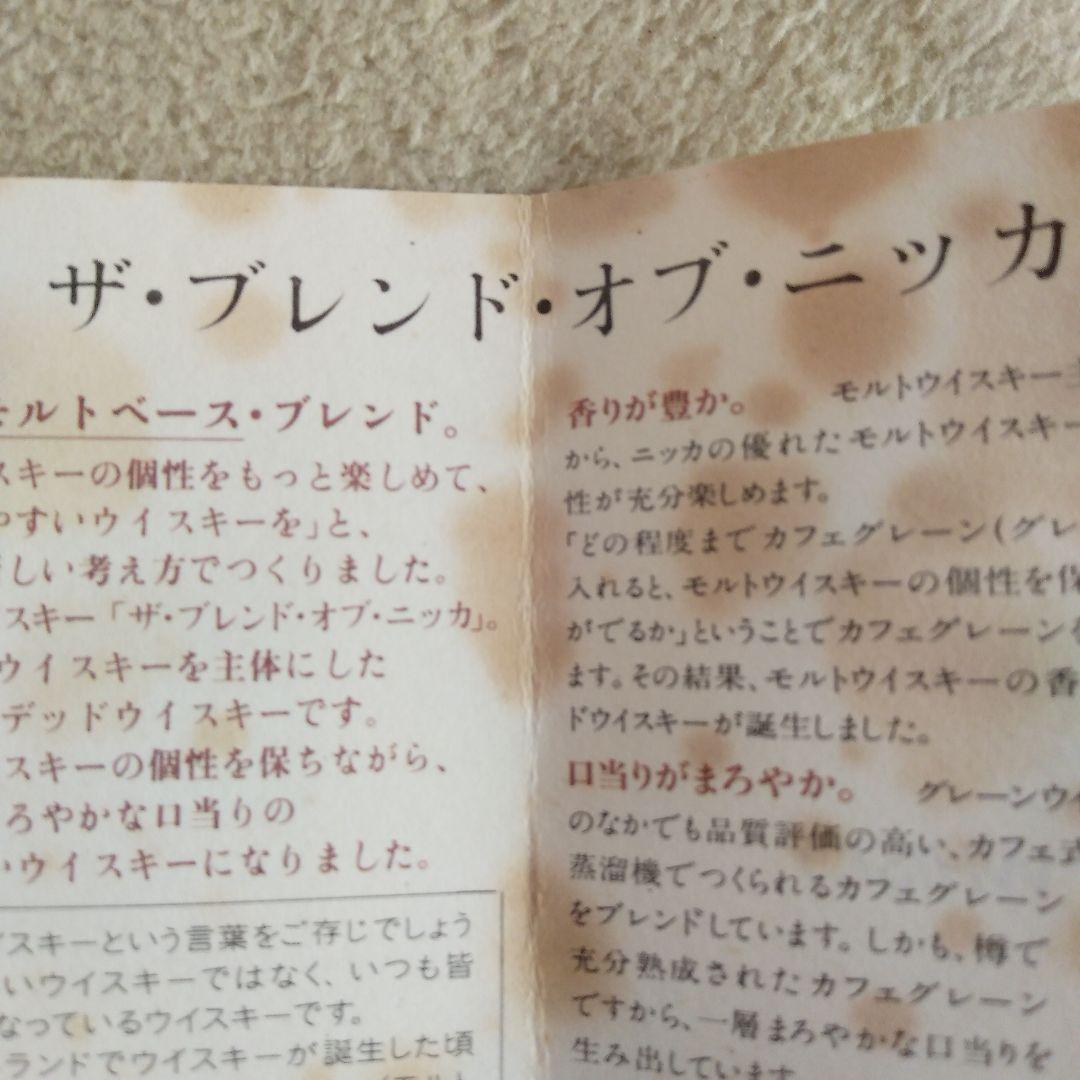 ザ・ブレンド・オブ・ニッカ
モルトベース・ブレンド。
スキーの個性をもっと楽しめて、
やすいウイスキーを」と、
新しい考え方でつくりました。
スキー「ザ・ブレンド・オブ・ニッカ」。
ウイスキーを主体にした
デッドウイスキーです。
スキーの個性を保ちながら、
ろやかな口当りの
いウイスキーになりました。
スキーという言葉をご存じでしょう
いウイスキーではなく、いつも皆
なっているウイスキーです。
ランドでウイスキーが誕生した頃
香りが豊か。 モルトウイスキー主
から、ニッカの優れたモルトウイスキー
性が充分楽しめます。
「どの程度までカフェグレーン(グレ
入れると、モルトウイスキーの個性を保
がでるか」ということでカフェグレーンを
ます。その結果、モルトウイスキーの香
ドウイスキーが誕生しました。
口当りがまろやか。 グレーンウイ
のなかでも品質評価の高い、カフェ式
蒸溜機でつくられるカフェグレーン
をブレンドしています。しかも、樽で
充分熟成されたカフェグレーン
ですから、一層まろやかな口当りを
生み出しています。